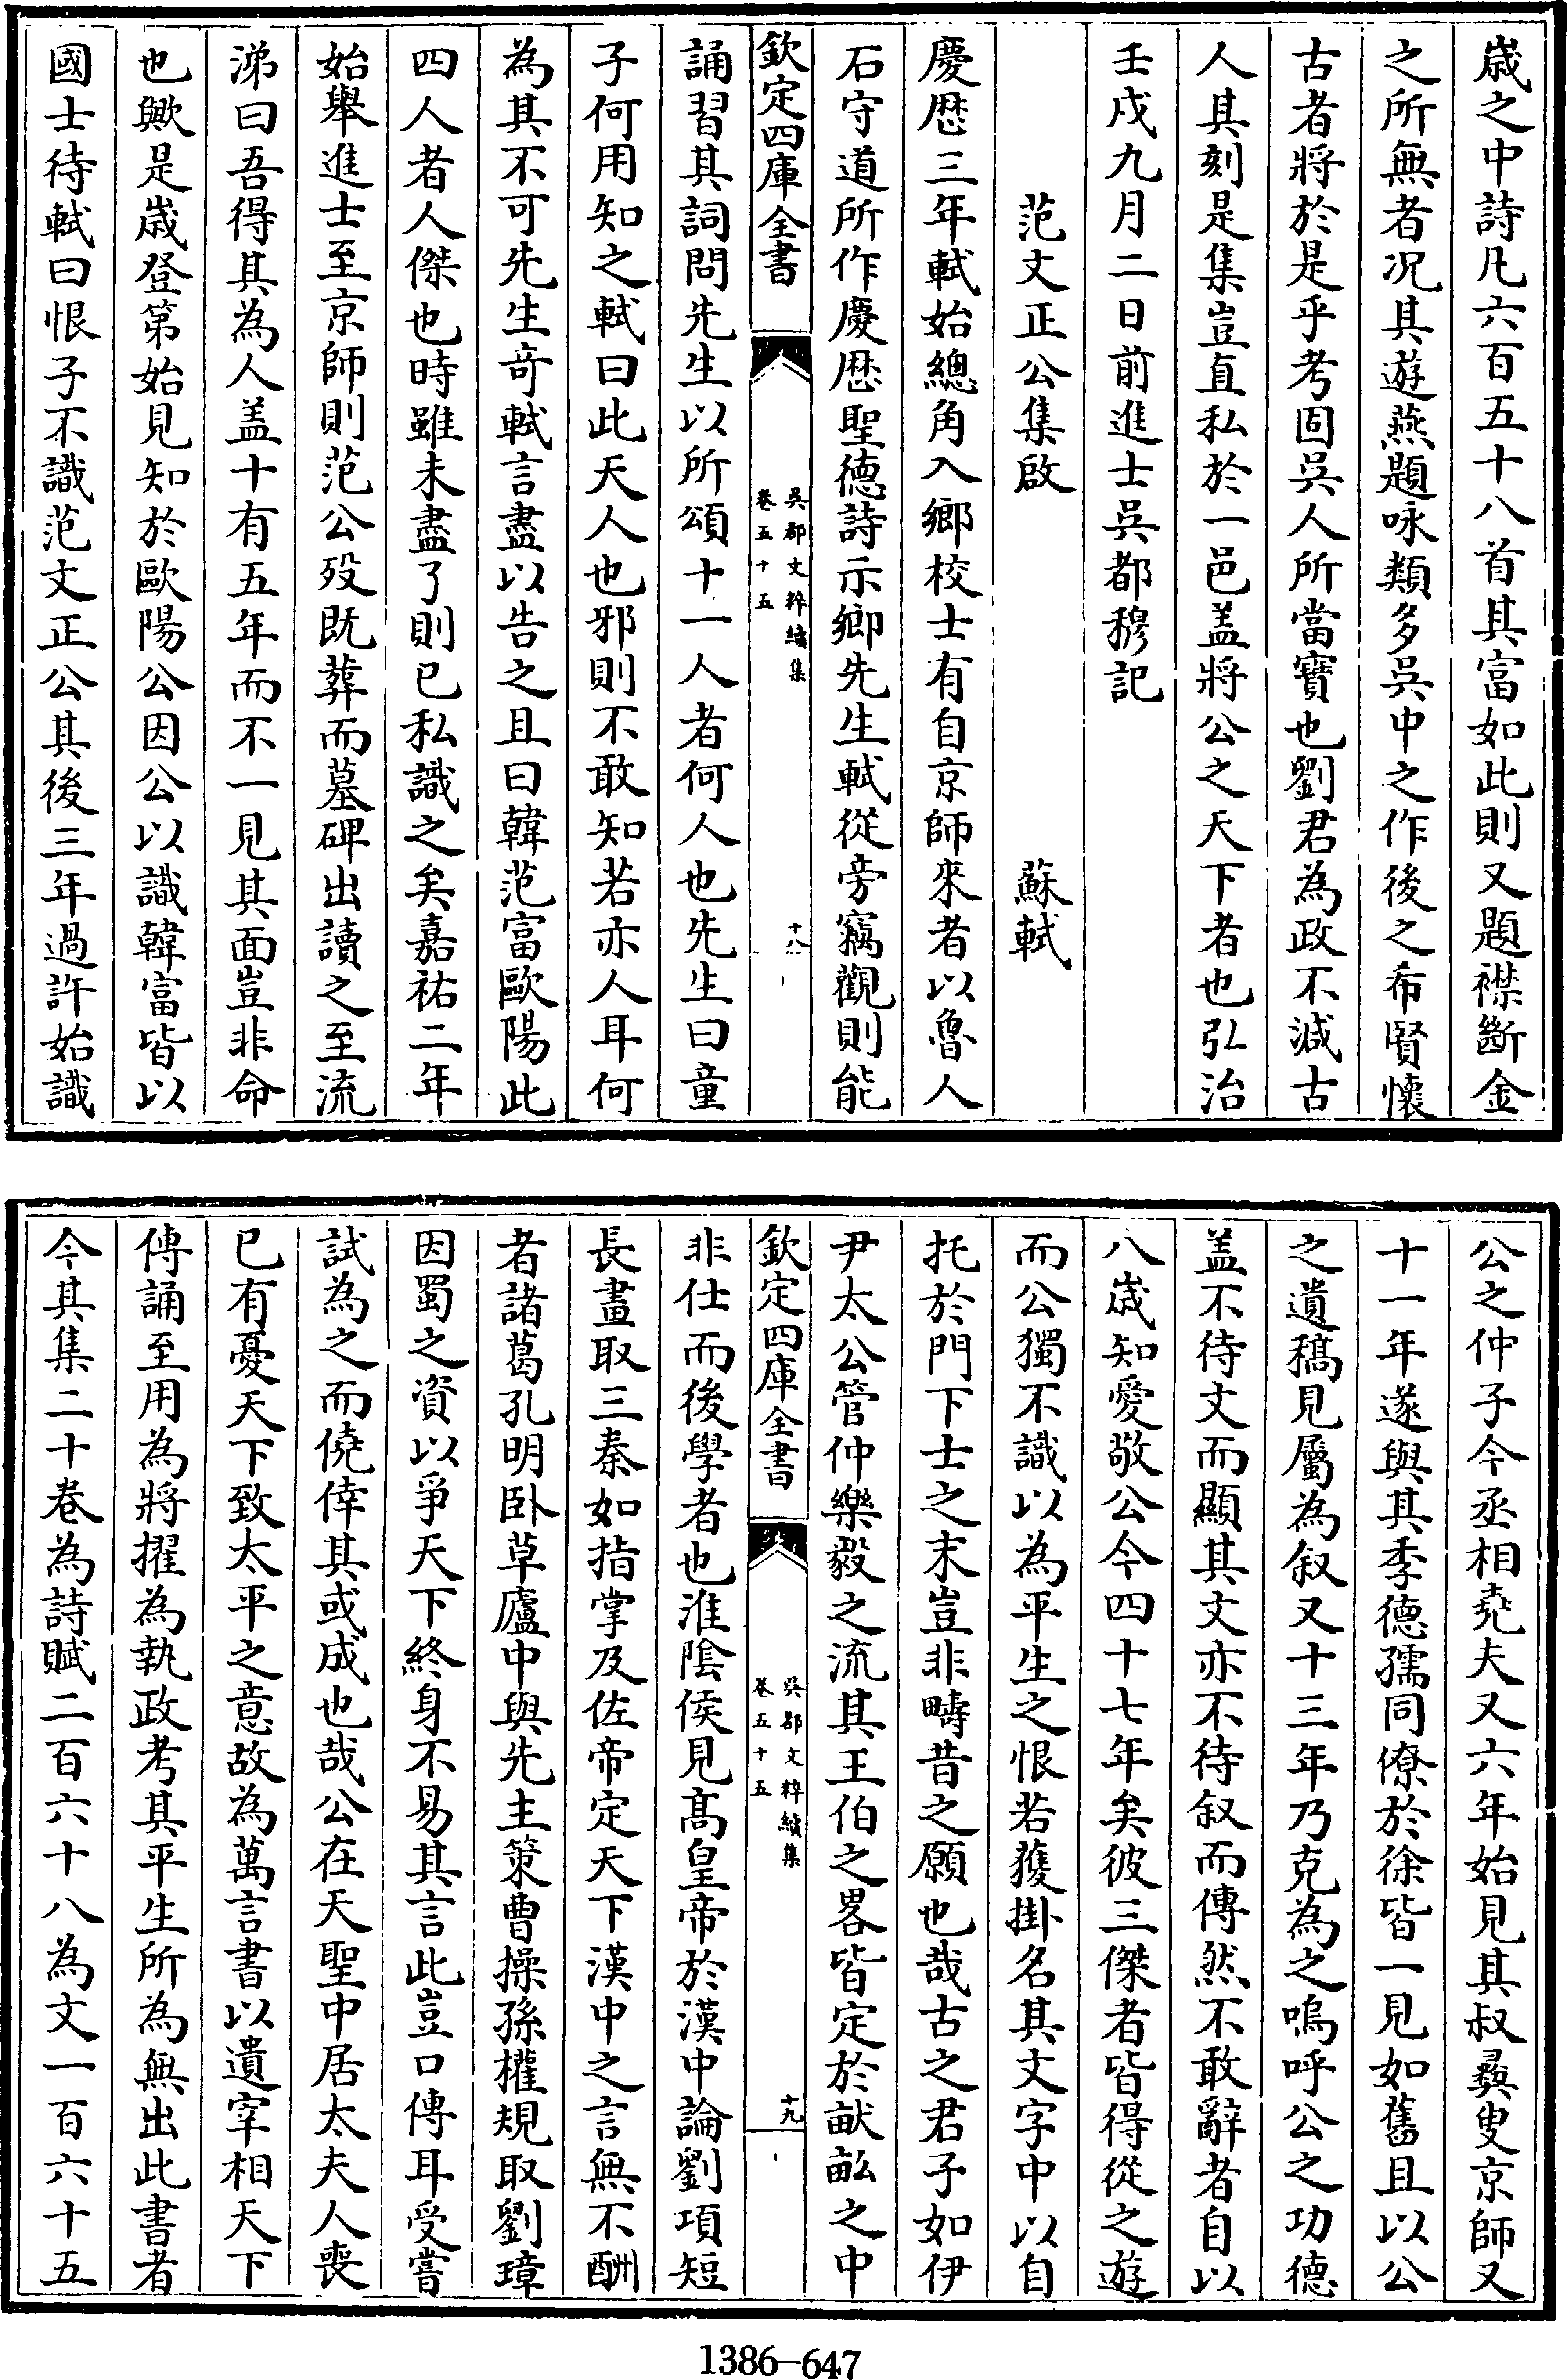 歲之中詩凡六百五十八首其富如此則又題襟斷金
之所無者况其遊燕題咏類多吳中之作後之希賢懷
古者將於是乎考固吳人所當寶也劉君為政不減古
人其刻是集豈直私於一邑盖將公之天下者也弘治
壬戌九月二日前進士吳都穆記
范文正公集啟 蘇軾
慶厯三年軾始總角入鄉校士有自京師來者以魯人
石守道所作慶厯聖德詩示鄉先生軾從旁竊觀則能
欽定四庫全書
吳都文粹續集
卷五十五
十八
誦習其詞問先生以所頌十一人者何人也先生曰童
子何用知之軾曰此天人也邪則不敢知若亦人耳何
為其不可先生竒軾言盡以告之且曰韓范富歐陽此
四人者人傑也時雖未盡了則已私識之矣嘉祐二年
始舉進士至京師則范公殁既葬而墓碑出讀之至流
涕曰吾得其為人盖十有五年而不一見其面豈非命
也歟是歲登第始見知於歐陽公因公以識韓富皆以
國士待軾曰恨子不識范文正公其後三年過許始識
公之仲子今丞相堯夫又六年始見其叔彛叟京師又
十一年遂與其季德孺同僚於徐皆一見如舊且以公
之遺稿見屬為叙又十三年乃克為之嗚呼公之功德
盖不待文而顯其文亦不待叙而傳然不敢辭者自以
八歲知愛敬公今四十七年矣彼三傑者皆得從之遊
而公獨不識以為平生之恨若獲掛名其文字中以自
托於門下士之末豈非疇昔之願也哉古之君子如伊
尹太公管仲樂毅之流其王伯之畧皆定於畎畝之中
欽定四庫全書
吳都文粹續集
卷五十五
十九
非仕而後學者也淮陰侯見髙皇帝於漢中論劉項短
長畫取三秦如指掌及佐帝定天下漢中之言無不酬
者諸葛孔明卧草廬中與先主策曹操孫權規取劉璋
因蜀之資以爭天下終身不易其言此豈口傳耳受嘗
試為之而僥倖其或成也哉公在天聖中居太夫人喪
已有憂天下致太平之意故為萬言書以遺宰相天下
傳誦至用為將擢為執政考其平生所為無出此書者
今其集二十卷為詩賦二百六十八為文一百六十五
1386—647